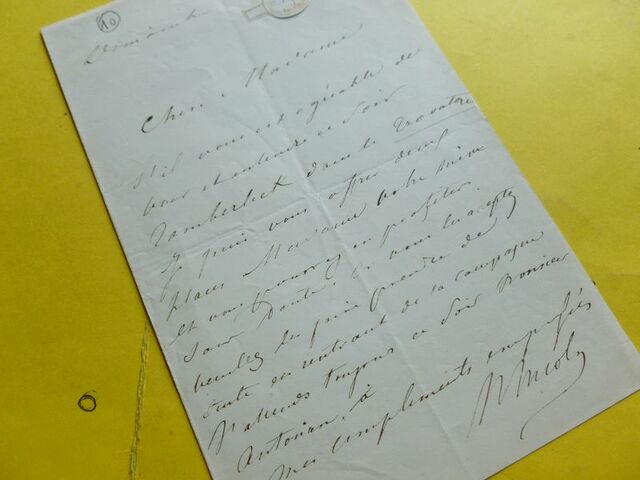 10
Dimanche
Chère Madame
S'il vous est agréable de
voir et entendre ce soir
Tamberlick dans le Trovatore
Je puis vous offrir deux
places Madame votre mère
et vous pourrez en profiter.
Sans Doute! Si vous les acceptez
veuillez les faire prendre de
suite en rentrant de la campagne
J'attends toujours ce soir Monsieur
Antonin, à
Mes compliments empressés